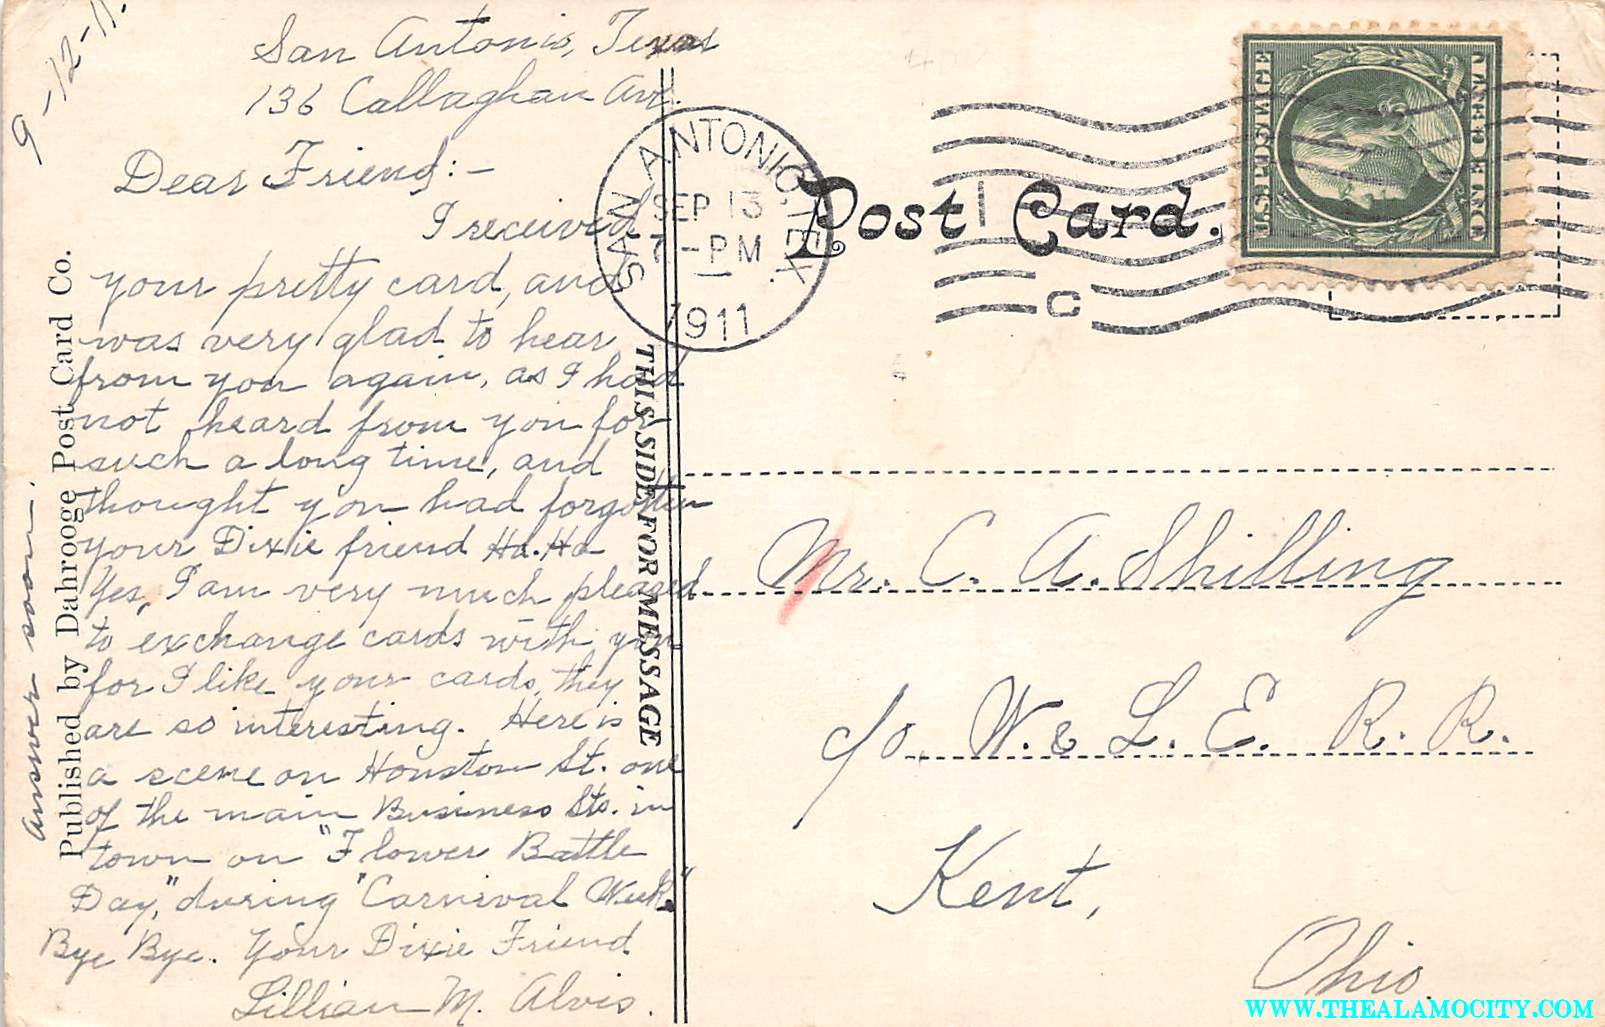 9-12-11.
San Antonio, Texas
136 Callaghan Ave.
Dear Friend:-
I received
your pretty card, and
was very glad to hear
from you again, as I had
not heard from you for
such a long time, and
thought you had forgotten
your Dixie friend Ha. Ha
Yes, I am very much pleased
to exchange cards with you
for I like your cards, they
are so interesting. Here is
a scene on Houston St. one
of the main Business Sts. in
town on "Flower Battle
Day," during "Carnival Week."
Bye Bye. Your Dixie Friend
Lillian M. Alvis.
Answer soon.
Published by Dahrooge Post Card Co.
THIS SIDE FOR MESSAGE
SAN ANTONIO, TEX.
SEP 13
7-PM
1911
Post Card.
C
U.S. POSTAGE
Mr. C. A. Shilling
c/o W. & L. E. R. R.
Kent,
Ohio.
WWW.THEALAMOCITY.COM